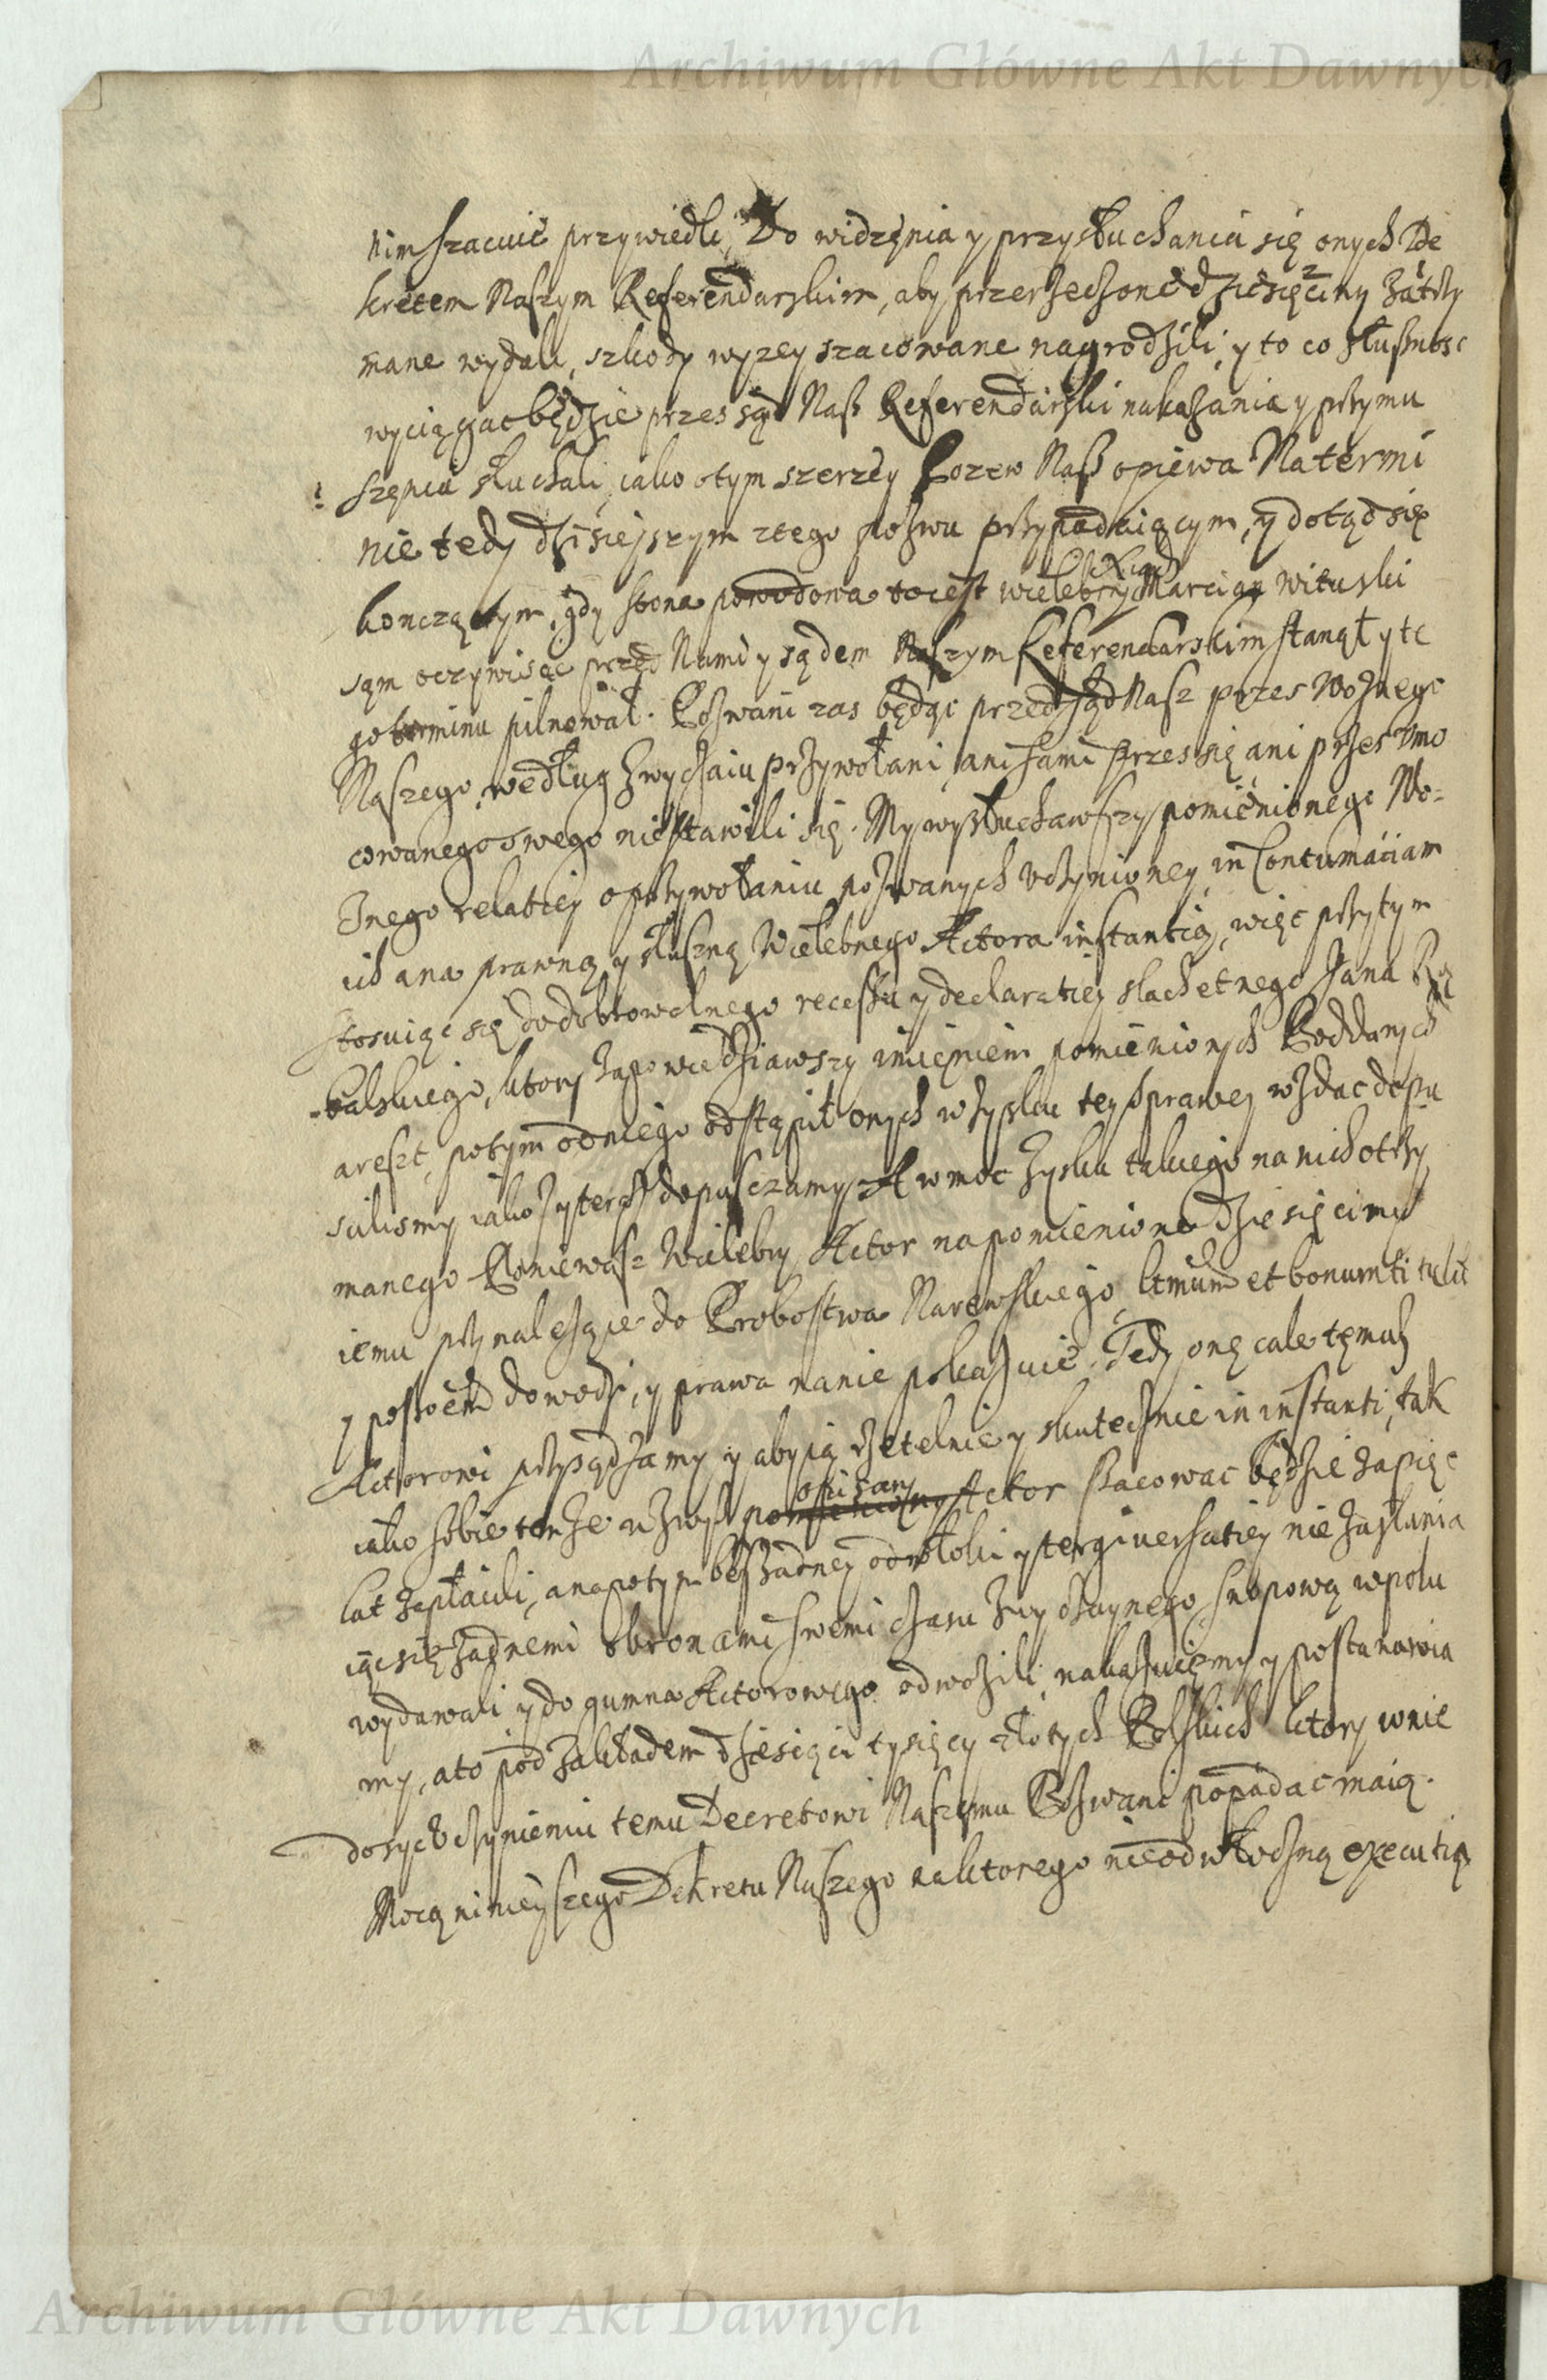 Archiwum Główne Akt Dawnych
nim szacuie przywiedli, Do widzęnia y przysłuchania się onych De
kretem Naszym Referendarskim, aby przerzeczone dziesięciny zatrzy
mane wydali, szkody wyzey szacowane nagrodzili, y to co słusznosc
wyciągac będzie przes sąd Nasz Referendarski nakazania y przymu
szęnia słuchali, iako otym szerzey Pozew Nasz opiewa Na termi
nie tedy dzisieyszym ztego pozwu przypadaiącym, y dotąd się
konczączym, gdy strona powodowa to iest wielebny Xiądz Marcian Wituski
sąm oczywisce przed Nami y sądem Naszym Referendarskim stanął y te
go terminu pilnował. Pozwani zas będąc przed sąd Nasz przes Woznego
Naszego, według zwyczaiu przywołani, ani sami przes się, ani przes Umo
cowanego swego nie stawili się. My wysłuchawszy pomienionego Wo=
znego relatiey o przywołaniu pozwanych uczynioney, in Contumaciam
ich a na prawną y słuszną Wielebnego Actora instantią, więc przytym
stosuiąc się do dobrowolnego recessu y declaratiey slachetnego Jana
balskiego, ktory zapowiedziawszy imieniem pomienionych Poddanych
areszt, potym od niego odstąpił onych w zysku tey sprawey wzdac dopu
scilismy iakoz y teraz dopusczamy A w moc zysku takiego na nich otrzy
manego Poniewasz Wielebny Actor na pomienione dziesięciny
iemu przynalezące do Probostwa Narewskiego, ltmum et bonum titulũ
y possess dowodzi, y prawa nanie pokazuie. Tedy onę cale tęmuz
Actorowi przysądzamy y aby ią rzetelnie y skutecznie in instanti, tak
iako sobie tenze u zwysz pomieniony opisany Actor szacowac będzie za pięc
lat zapłacili, a napotym bez zadney odwłoki y tergiuersatiey nie zasłania
iąc się zadnemi obronami swemi czasu zwyczaynego snopową wpolu
wydawali y do gumna Actorowego odwozili, nakazuięmy y postanawia
my, a to pod zakładem dziesięci tysięcy złotych Polskich ktory wnie
dosyc uczynieniu temu Decretowi Naszemu Pozwani popadac maią.
Mocą ninieyszego Dekretu Naszego na ktorego nieodwłoczną executią
Archiwum Główne Akt Dawnych